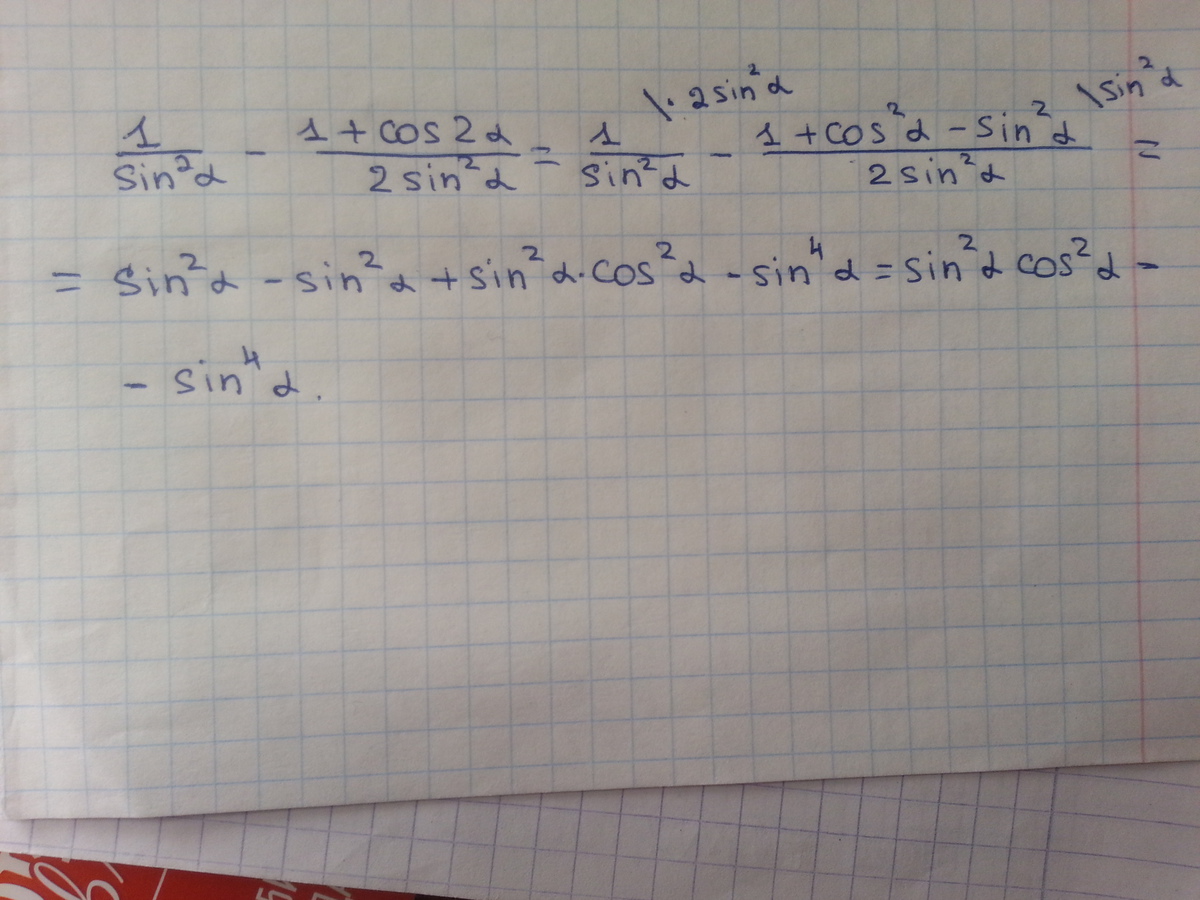 \· 2sin²α \sin²α
1/sin²α - (1+cos2α)/(2sin²α) = 1/sin²α - (1+cos²α-sin²α)/(2sin²α) =
= sin²α - sin²α + sin²α·cos²α - sin⁴α = sin²α cos²α -
- sin⁴α.